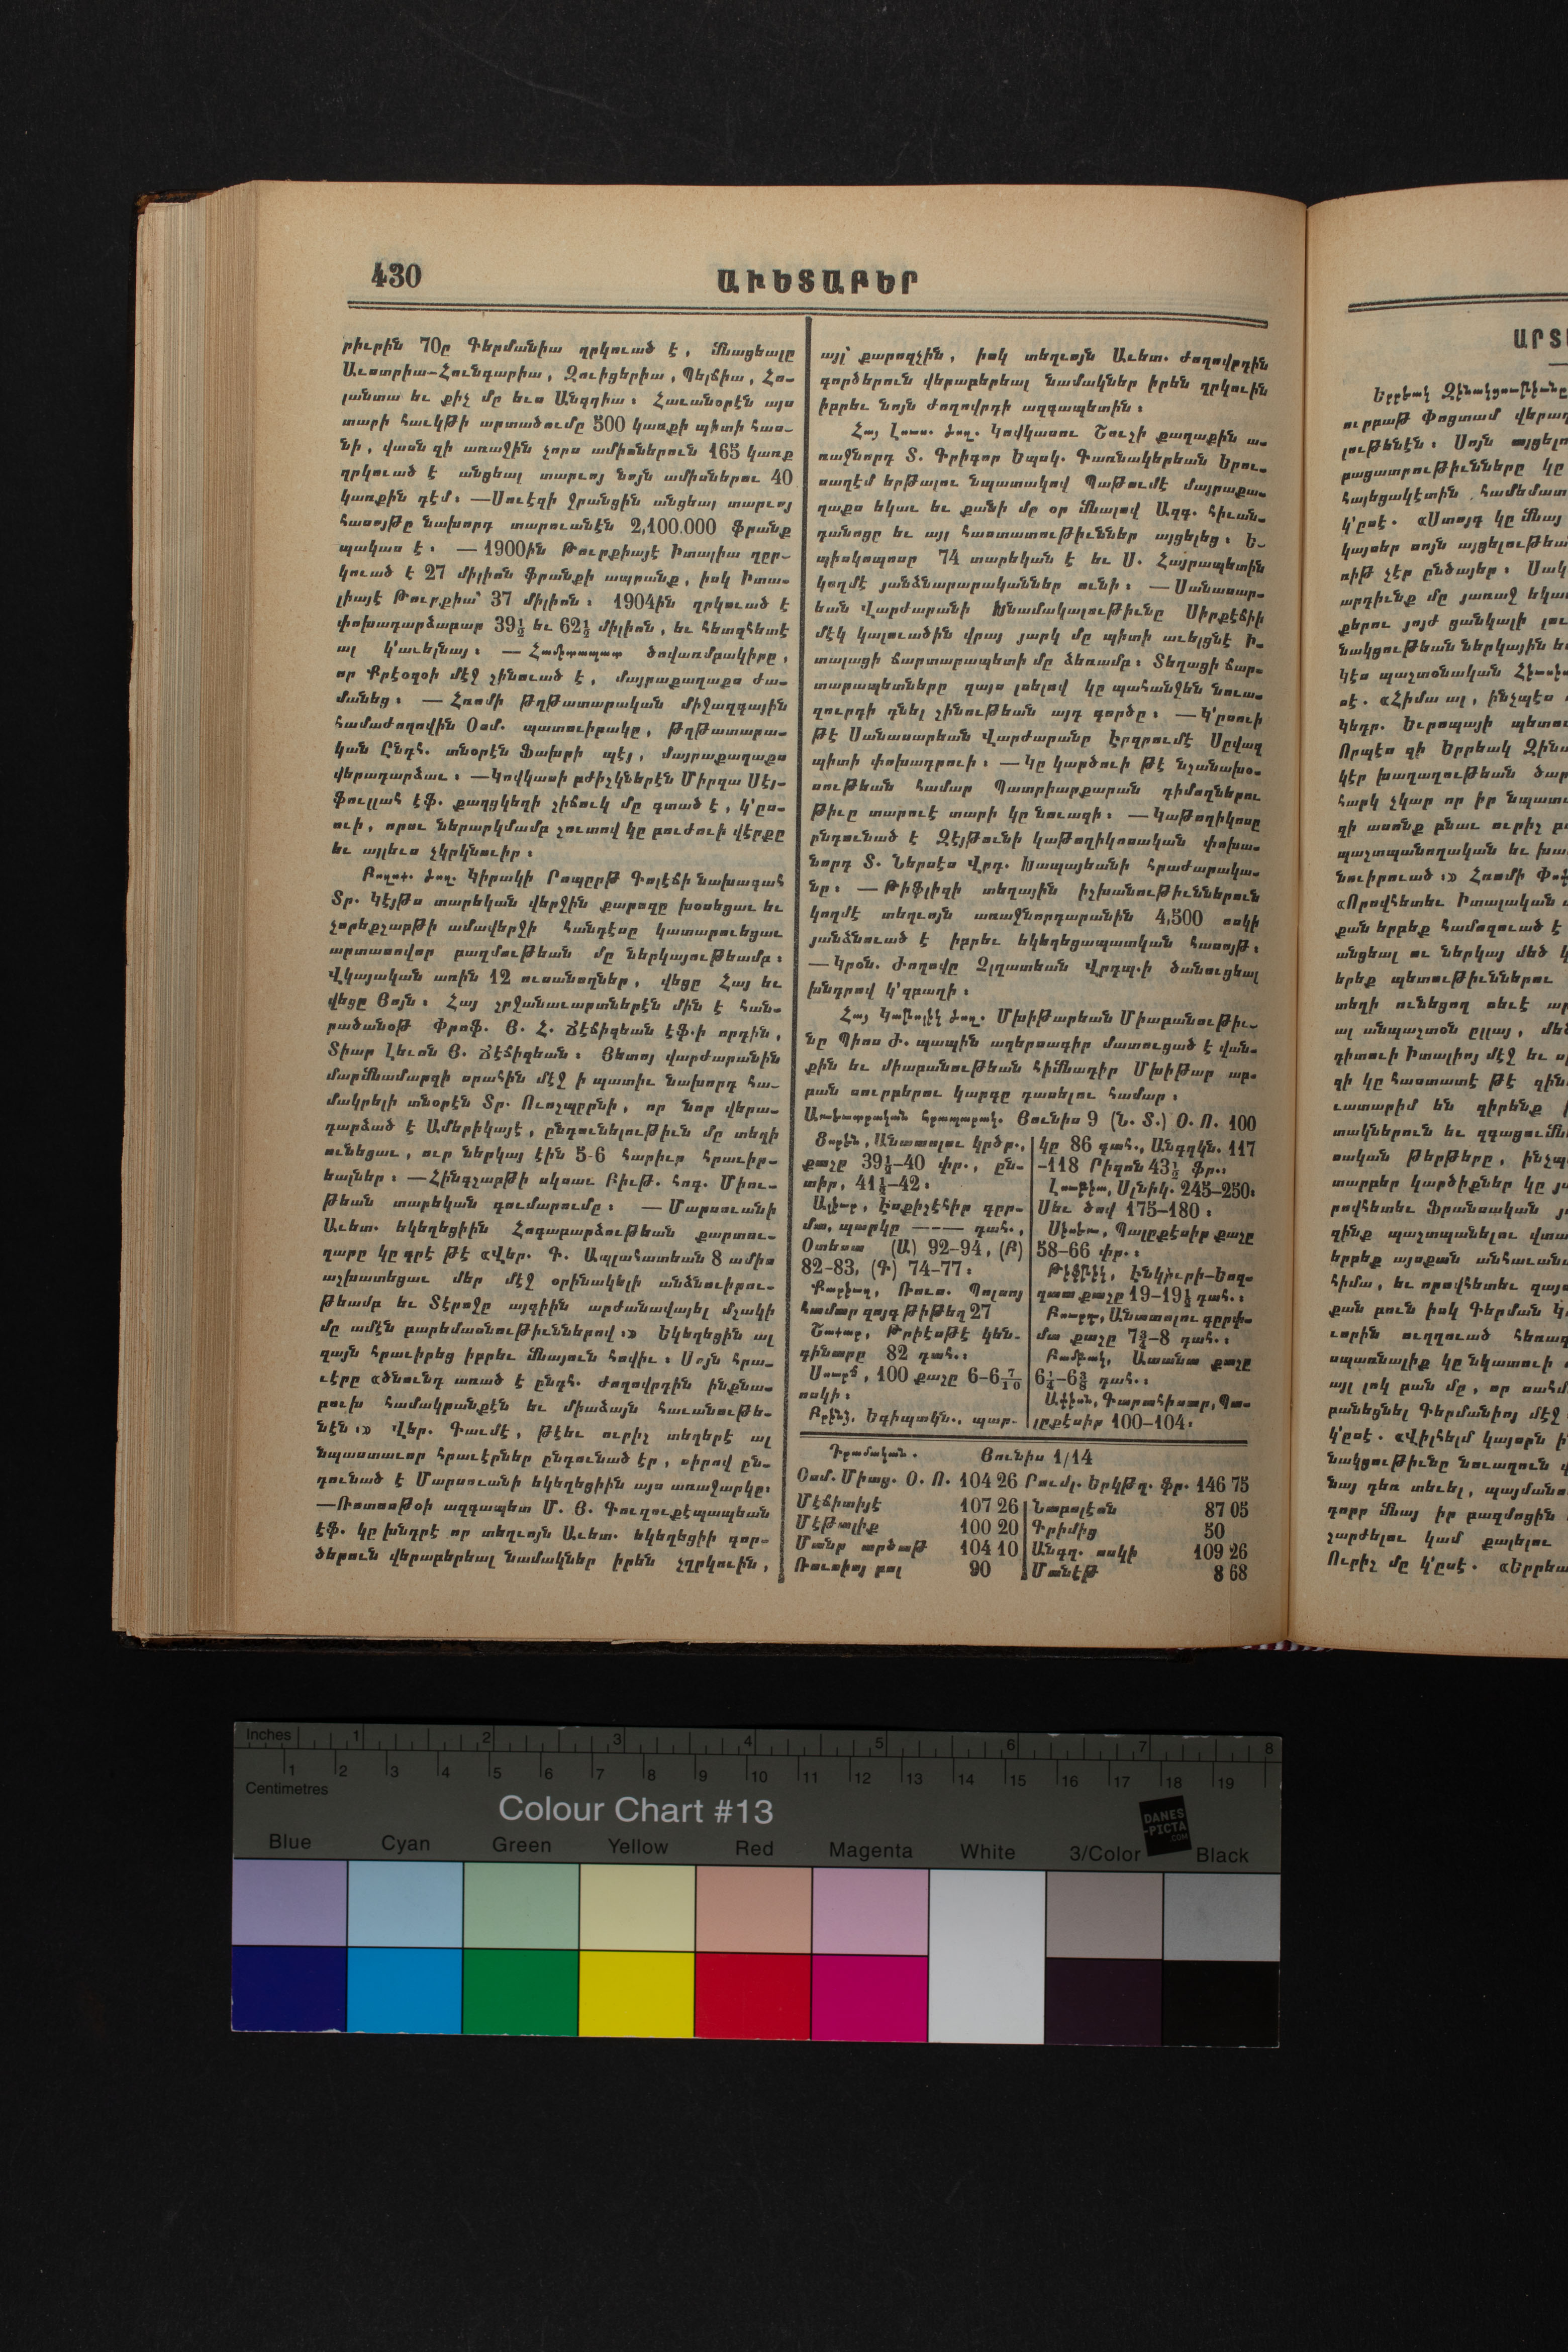 430
ԱՒԵՏԱԲԵՐ
րիւրին 70ը Գերմանիա ղրկուած է, մնացեալը
Աւստրիա-Հունգարիա, Զուիցերիա, Պելճիա, Հո-
լանտա եւ քիչ մը եւս Անգղիա։ Հաւանօրէն այս
տարի հաւկթի արտածումը 500 կառքի պիտի հաս-
նի, վասն զի առաջին չորս ամիսներուն 165 կառք
ղրկուած է անցեալ տարւոյ նոյն ամիսներու 40
կառքին դէմ։ —Սուէզի ջրանցին անցեալ տարւոյ
հասոյթը նախորդ տարուանէն 2,100.000 ֆրանք
պակաս է։ —1900ին Թուրքիայէ Իտալիա ղըր-
կուած է 27 միլիոն ֆրանքի ապրանք, իսկ Իտա-
լիայէ Թուրքիա՝ 37 միլիոն։ 1904ին ղրկուած է
փոխադարձաբար 39½ եւ 62½ միլիոն, եւ հետզհետէ
ալ կ՚աւելնայ։ — Համիտապատ ծովառմբակիրը,
որ Քրէօզօի մէջ շինուած է, մայրաքաղաքս ժա-
մանեց։ — Հռոմի Թղթատարական միջազգային
համաժողովին Օսմ. պատուիրակը, Թղթատարա-
կան Ընդհ. տնօրէն Ֆախրի պէյ, մայրաքաղաքս
վերադարձաւ։ —Կովկասի բժիշկներէն Միրզա Սէյ-
ֆուլլահ էֆ. քաղցկեղի շիճուկ մը գտած է, կ՚ըս-
ուի, որու ներարկմամբ շուտով կը բուժուի վէրքը
եւ այլեւս չկրկնուիր։
Բողոք. ժող. Կիրակի Րոպըրթ Գոլէճի նախագահ
Տր. Կէյթս տարեկան վերջին քարոզը խօսեցաւ եւ
չորեքշաբթի ամավերջի հանդէսը կատարուեցաւ
արտասովոր բազմութեան մը ներկայութեամբ։
Վկայական առին 12 ուսանողներ, վեցը Հայ եւ
վեցը Յոյն։ Հայ շրջանաւարտներէն մին է հան-
րածանօթ Փրոֆ. Յ. Հ. Ճէճիզեան էֆ.ի որդին,
Տիար Լեւոն Յ. Ճէճիզեան։ Յետոյ վարժարանին
մարմնամարզի սրահին մէջ ի պատիւ նախորդ հա-
մակրելի տնօրէն Տր. Ուոշպըրնի, որ նոր վերա-
դարձած է Ամերիկայէ, ընդունելութիւն մը տեղի
ունեցաւ, ուր ներկայ էին 5-6 հարիւր հրաւիր-
եալներ։ —Հինգշաբթի սկսաւ Բիւթ. հոգ. Միու-
թեան տարեկան գումարումը։ — Մարսուանի
Աւետ. եկեղեցիին Հոգաբարձութեան քարտու-
ղարը կը գրէ թէ «Վեր. Գ. Ապլահատեան 8 ամիս
աշխատեցաւ մեր մէջ օրինակելի անձնուիրու-
թեամբ եւ Տէրոջը այգիին արժանավայել մշակի
մը ամէն բարեմասնութիւններով։» Եկեղեցին ալ
զայն հրաւիրեց իբրեւ մնայուն հովիւ։ Սոյն հրա-
ւէրը «ծնունդ առած է ընդհ. ժողովրդին ինքնա-
բուխ համակրանքէն եւ միաձայն հաւանութե-
նէն։» Վեր. Գաւմէ, թէեւ ուրիշ տեղերէ ալ
նպաստաւոր հրաւէրներ ընդունած էր, սիրով ըն-
դունած է Մարսուանի եկեղեցիին այս առաջարկը։
—Ռոտոսթօի ազգապետ Մ. Յ. Գույուքէպապեան
էֆ. կը խնդրէ որ տեղւոյն Աւետ. եկեղեցիի գոր-
ծերուն վերաբերեալ նամակներ իրեն չղրկուին,
այլ՝ քարոզչին, իսկ տեղւոյն Աւետ. ժողովրդին
գործերուն վերաբերեալ նամակներ իրեն ղրկուին
իբրեւ նոյն ժողովրդի ազգապետին։
Հայ Լուս. ժող. Կովկասու Շուշի քաղաքին ա-
ռաջնորդ Տ. Գրիգոր Եպսկ. Գառնակերեան Երու-
սաղէմ երթալու նպատակով Պաթումէ մայրաքա-
ղաքս եկաւ եւ քանի մը օր մնալով Ազգ. հիւան-
դանոցը եւ այլ հաստատութիւններ այցելեց։ Ե-
պիսկոպոսը 74 տարեկան է եւ Ս. Հայրապետին
կողմէ յանձնարարականներ ունի։ —Սանասար-
եան Վարժարանի Խնամակալութիւնը Սիրքէճիի
մէկ կալուածին վրայ յարկ մը պիտի աւելցնէ Ի-
տալացի ճարտարապետի մը ձեռամբ։ Տեղացի ճար-
տարապետները զայս լսելով կը պահանջեն նուա-
զուրդի դնել շինութեան այդ գործը։ —Կ՚ըսուի
թէ Սանասարեան Վարժարանը Էրզրումէ Սըվազ
պիտի փոխադրուի։ —Կը կարծուի թէ նշանախօ-
սութեան համար Պատրիարքարան դիմողներու
թիւը տարուէ տարի կը նուազի։ —Կաթողիկոսը
ընդունած է Զէյթունի կաթողիկոսական փոխա-
նորդ Տ. Ներսէս Վրդ. Խապայեանի հրաժարակա-
նը։ —Թիֆլիզի տեղային իշխանութիւններուն
կողմէ տեղւոյն առաջնորդարանին 4,500 ոսկի
յանձնուած է իբրեւ եկեղեցապատկան հասոյթ։
—Կրօն. Ժողովը Չլղատեան Վրդպ.ի ծանուցեալ
խնդրով կ՚զբաղի։
Հայ Կաթոլիկ ժող. Մխիթարեան Միաբանութիւ-
նը Պիոս Ժ. պապին աղերսագիր մատուցած է վան-
քին եւ միաբանութեան հիմնադիր Մխիթար աբ-
բան սուրբերու կարգը դասելու համար։
Առեւտրական հրապարակ. Յունիս 9 (Ն. Տ.) Օ. Ո. 100
Ցորեն, Անատոլու կրծր.,
քաշը 39½-40 փր., ըն-
տիր, 41¼-42։
Ալիւր, Էսքիշէհիր զըր-
մա, պարկը ——— դահ.,
Օտեսա (Ա) 92-94, (Բ)
82-83, (Գ) 74-77։
Քարիւղ, Ռուս. Պոլսոյ
համար զոյգ թիթեղ 27
Շաքար, Թրիէսթէ կեն-
դինարը 82 դահ.։
Սուրճ, 100 քաշը 6-6 7/10
ոսկի։
Բրինձ, Եգիպտկն., պար-
կը 86 դահ., Անգղկն. 117
-118 Րիզոն 43½ ֆր.։
Լուբիա, Սլնիկ. 245-250։
Սեւ ծով 175-180։
Սիսեռ, Պալըքէսիր քաշը
58-66 փր.։
Թիֆթիկ, Էնկիւրի-Եոզ-
ղատ քաշը 19-19½ դահ.։
Բուրդ, Անատոլու զըրփ-
մա քաշը 7¾-8 դահ.։
Բամբակ, Ատանա քաշը
6¼-6⅜ դահ.։
Ափիոն, Գարահիսար, Պա-
լըքէսիր 100-104։
Դրամական. Յունիս 1/14
Օսմ. Միաց. Օ. Ո. 104 26 Րումլ. Երկթղ. ֆր. 146 75
Մէճիտիյէ 107 26 Նաբոլէոն 87 05
Մէթալիք 100 20 Գրիմից 50
Մանր արծաթ 104 10 Անգղ. ոսկի 109 26
Ռուսիոյ րպլ 90 Մանէթ 8 68
ԱՐՏ
Երբեակ
ուրբաթ Փոցտամ
լութենէն։ Սոյն
բացատրութիւնները կը
հայեցակէտին համեմատ
կ՚ըսէ. «Ստոյգ կը մնայ
կայսեր սոյն
ռիթ չէր ընծայեր։
արդիւնք մը յառաջ
քերու յոյժ ցանկալի
նակցութեան ներկային
կէս պաշտօնական
սէ. «Հիմա ալ, ինչպէս
կեդր. Եւրոպայի
Որպէս զի Երրեակ
կէր խաղաղութեան
հարկ չկար որ իր
զի ասոնք բնաւ ուրիշ
պաշտպանողական եւ
նուիրուած։» Հռոմի
«Որովհետեւ Իտալական
քան երբեք համոզուած է
անցեալ ու ներկայ մեծ
երեք պետութիւններու
տեղի ունեցող որեւէ
ալ անպաշտօն ըլլայ,
դիտուի Իտալիոյ մէջ եւ
զի կը հաստատէ թէ
ւատարիմ են զիրենք
տակներուն եւ
սական թերթերը,
տարբեր կարծիքներ կը
րովհետեւ Ֆրանսական
զինք պաշտպանելու
երբեք այսքան
հիմա, եւ որովհետեւ
քան բուն իսկ Գերման
ւորին ուղղուած
սպառնալիք կը նկատուի
այլ լոկ բան մը, որ
բանեցնել Գերմանիոյ մէջ
կ՚ըսէ. «Վիլհելմ կայսրն
նակցութիւնը նուաղուն
նայ դեռ տեւել,
դորր մնայ իր բազմոցին
շարժելու կամ քալելու
Ուրիշ մը կ՚ըսէ.
Inches 1 2 3 4 5 6 7 8
Centimetres 1 2 3 4 5 6 7 8 9 10 11 12 13 14 15 16 17 18 19
Colour Chart #13
DANES
-PICTA
.COM
Blue Cyan Green Yellow Red Magenta White 3/Color Black